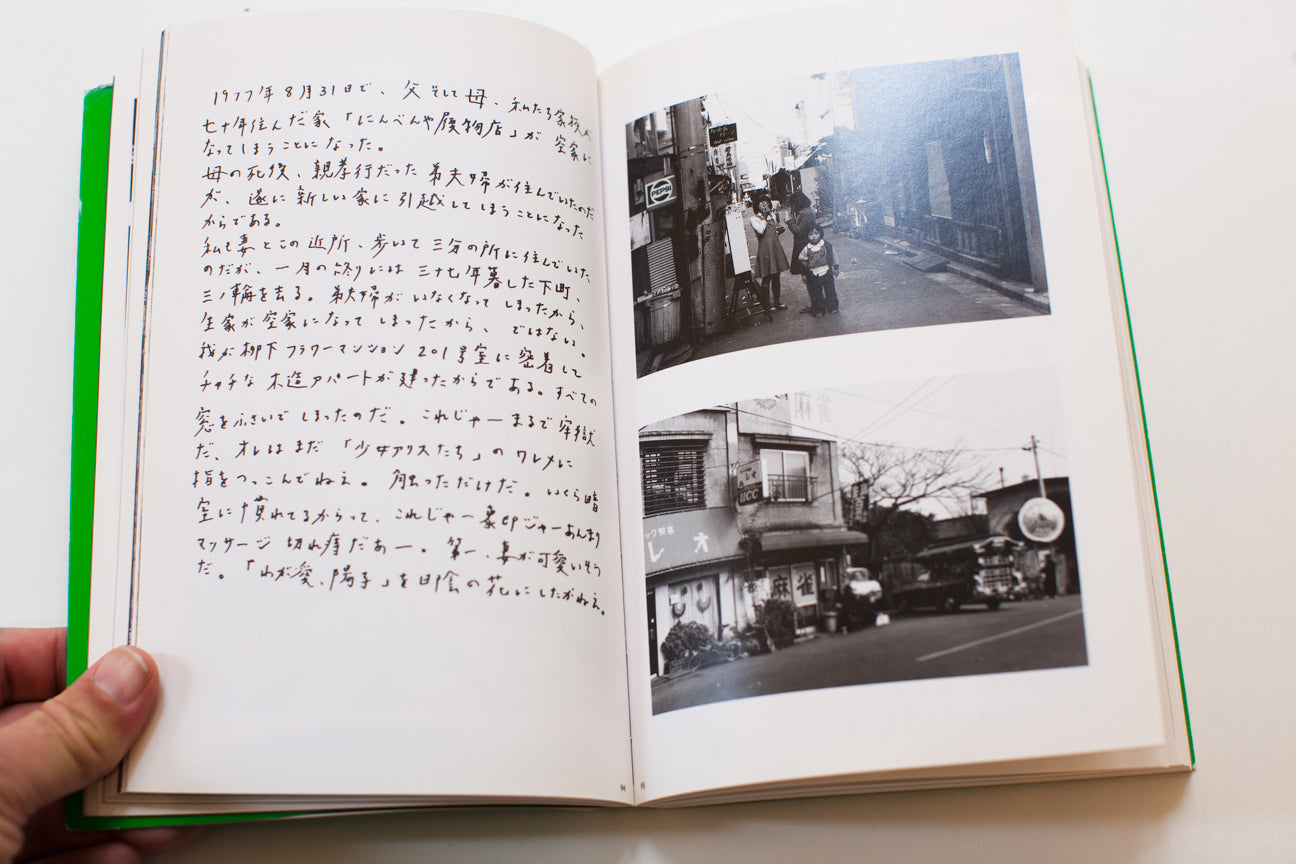 1977年8月31日で、父そして母、私たち家族が
七十年住んだ家「にんべんや履物店」が 空家に
なってしまうことになった。
母の死後、親孝行だった 弟夫婦が住んでいたのだ
が、遂に新しい家に引越してしまうことになった
からである。
私も妻とこの近所、歩いて三分の所に住んでいた
のだが、一月の終りには 三十七年暮した下町、
三ノ輪を去る。弟夫婦が いなくなって しまったから、
生家が空家になって しまったから、ではない。
我が柳下フラワーマンション 201号室に密着して
チャチな 木造アパートが建ったからである。すべての
窓をふさいで しまったのだ。これじゃーまるで牢獄
だ、オレはまだ「少女アリスたち」のワレメに
指をつっこんでねえ。触っただけだ。いくら暗
室に慣れてるからって、これじゃー象印ジャーあんまり
マッサージ 切れ痔だあー。第一、妻が可愛いそう
だ。「わが愛、陽子」を日陰の花にしたかねえ。
PEPSI
麻雀
レオ
UCC
ック喫茶
レオ
麻雀